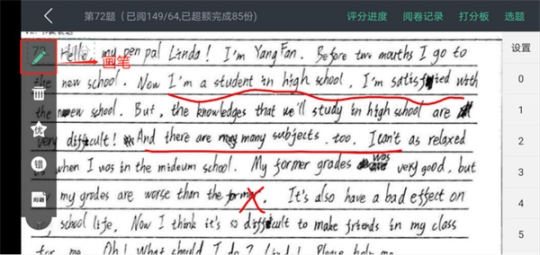 第72题（已阅149/64,已超额完成85份）
评分进度 阅卷记录 打分板 选题
画笔
Hello, my pen pal Linda! I'm Yang Fan. Before two mouths I go to
the new school. Now I'm a student in high school. I'm satisfied with
the new school. But, the knowledges that we'll study in high school are
very difficult! And there are many subjects, too. I can't as relaxed
when I was in the mideum school. My former grades was very good, but
my grades are worse than the former. It's also have a bad effect on
school life. Now I think it's so difficult to make friends in my class
for me. Oh! What should I do? Please help me
设置
0
1
2
3
4
5
优
错